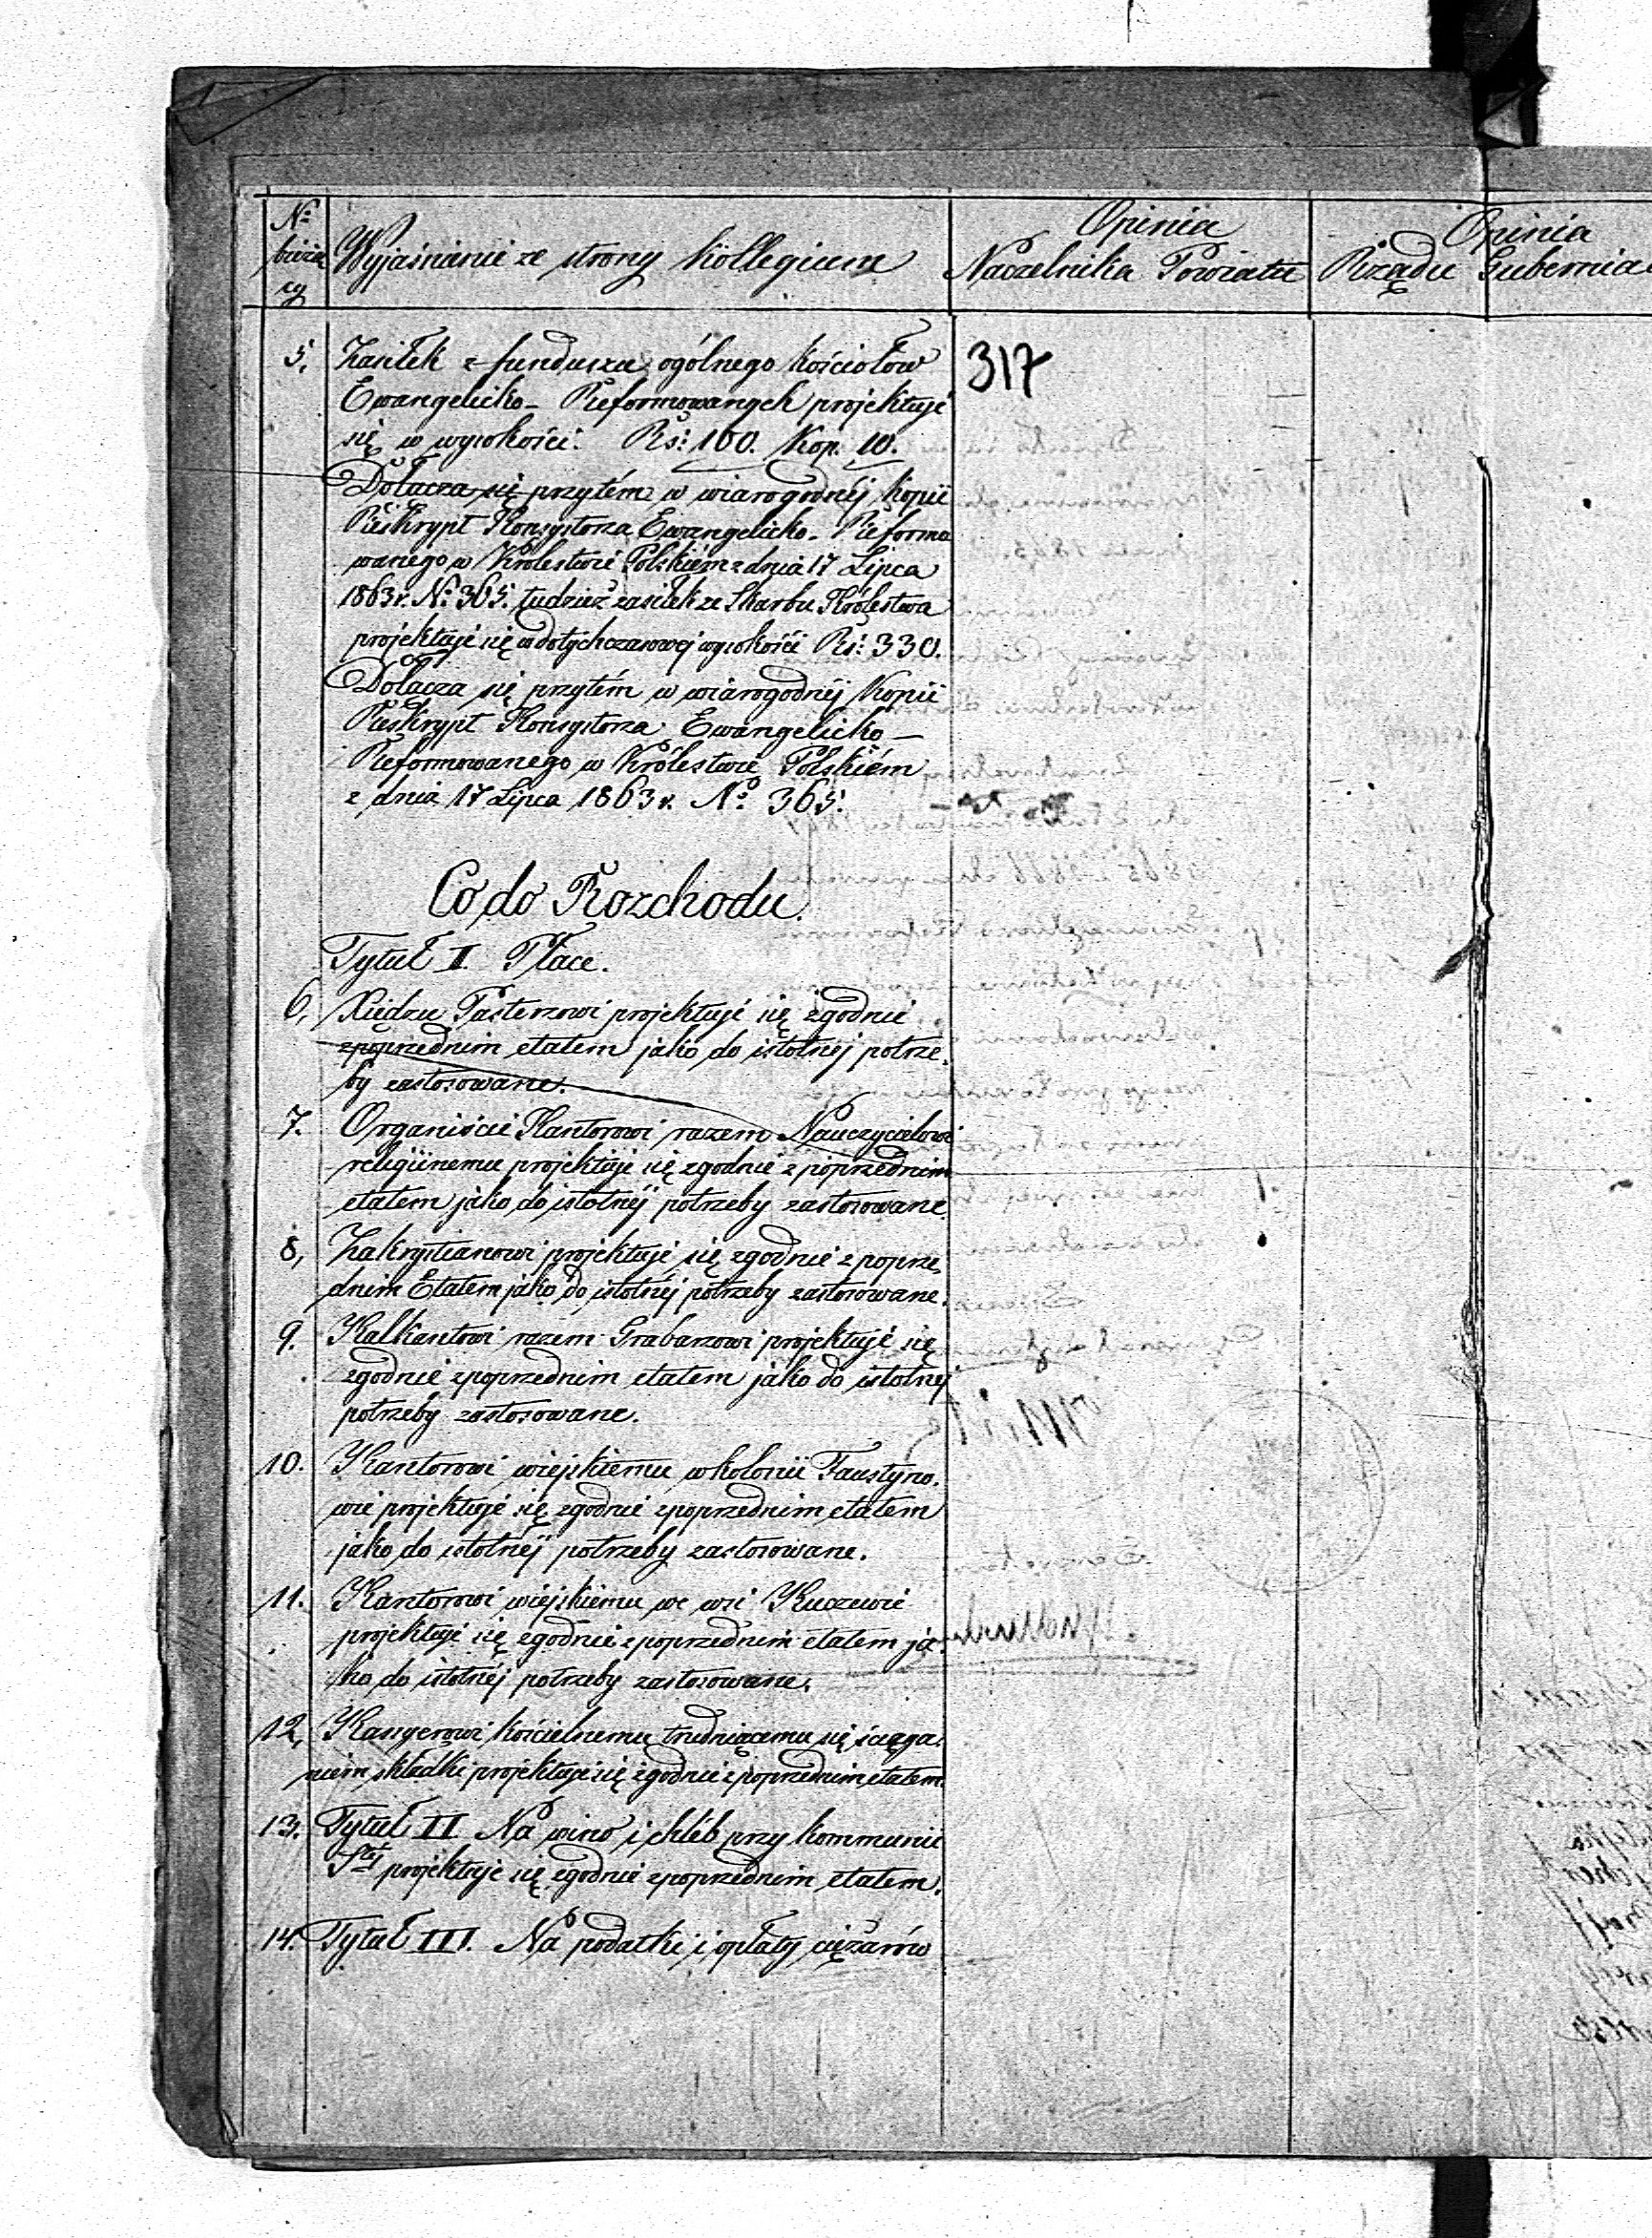 Nº bieżą cy
Wyjaśnienie ze strony Kollegium
Opinia
Naczelnika Powiatu
Opinia
Rządu Gubernia
317
5. Zasiłek z funduszu ogólnego Kościołów
Ewangelicko-Reformowanych projektuje
się w wysokości: Rs: 100. Kop. 10.
Dołącza się przytém w wiarogodnéj Kopii
Reskrypt Konsystorza Ewangelicko-Reformo
wanego w Królestwie Polskiém z dnia 17 Lipca
1863 r. Nº 365. tudzież zasiłek ze Skarbu Królestwa
projektuje się w dotychczasowej wysokości Rs: 330.
Dołącza się przytém w wiarogodnéj Kopii
Reskrypt Konsystorza Ewangelicko-
Reformowanego w Królestwie Polskiém
z dnia 17 Lipca 1863 r. Nº 365.
Co do Rozchodu.
Tytuł I. Płace.
6. Xiędzu Pasterzowi projektuje się zgodnie
z poprzednim etatem jako do istotnej potrze,
by zastosowane.
7. Organiście Kantorowi razem Nauczycielowi
religijnemu projektuje się zgodnie z poprzednim
etatem jako do istotnéj potrzeby zastosowane.
8, Zakrystianowi projektuje się zgodnie z poprze,
dnim Etatem jako do istotnéj potrzeby zastosowane.
9. Kalkantowi razem Grabarzowi projektuje się
zgodnie z poprzednim etatem jako do istotnej
potrzeby zastosowane.
10. Kantorowi wiejskiemu w kolonii Faustyno,
wie projektuje się zgodnie z poprzednim etatem
jako do istotnéj potrzeby zastosowane.
11. Kantorowi wiejskiemu we wsi Kuczewie
projektuje się zgodnie z poprzednim etatem ja,
ko do istotnéj potrzeby zastosowane.
12, Kassyerowi kościelnemu trudniącemu się ściąga,
niem składki projektuje się zgodnie z poprzednim etatem
13. Tytuł II Na wino i chléb przy kommunii
Stéj projektuje się zgodnie z poprzednim etatem.
14. Tytuł III. Na podatki i opłaty ciężarów